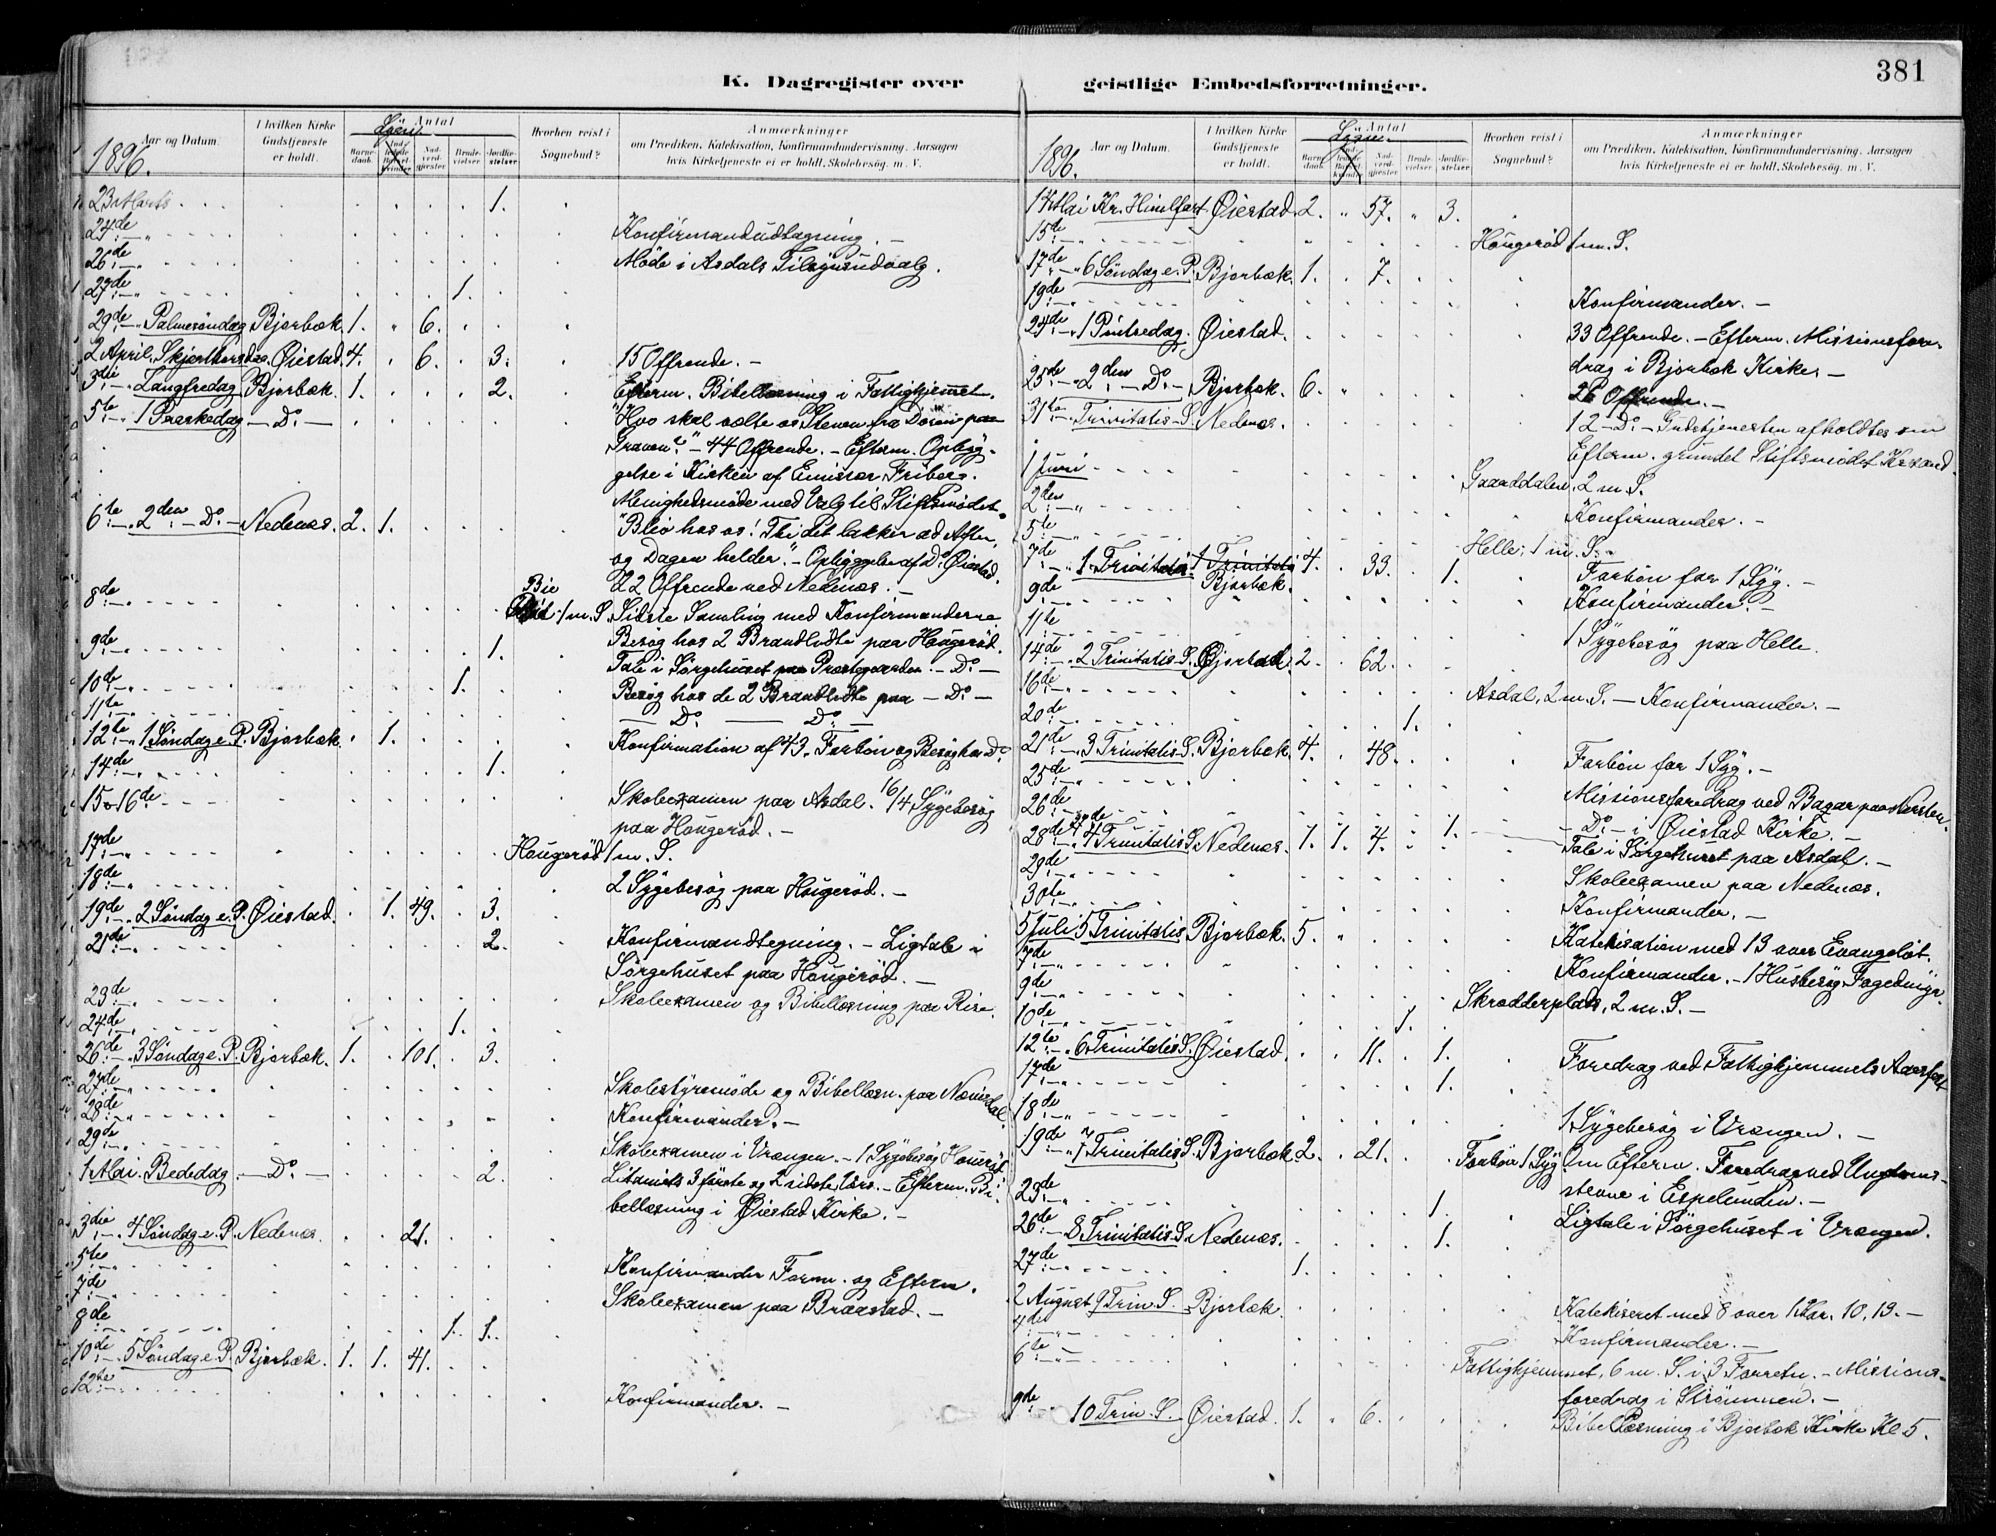 381
K. Dagregister over geistlige Embedsforretninger.
Aar og Datum. I hvilken Kirke Gudstjeneste er holdt. Antal Hvorhen reist i Sognebud? Anmærkninger om Prædiken, Katekisation, Konfirmandundervisning, Aarsagen hvis Kirketjeneste ei er holdt, Skolebesøg m. V.
1896.
23 Marts 1.
24de Konfirmandudtagning. –
26de Møde i Asdals Tilsynsudvalg.
27de 1.
29de Palmesøndag Bjorbæk. 1. „ 6.
2 April. Skjærthorsdag. Øiestad. 4. 6. 3. 15 Offrende. –
3die Langfredag Bjorbæk. 1. 2. Efterm. Bibellæsning i Fattighjemmet.
5te 1 Paaskedag – Do – "Hvo skal vælte os Stenen fra Døren paa
Graven?" – 44 Offrende. – Efterm. Opbyg-
gelse i Kirken af Emissær Friberg.
Menighedsmøde med Valg til Stiftsmødet.
6te 2den – Do – Nedenæs. 2. 1. "Bliv hos os! Thi det lakker ad Aften,
og Dagen helder." – Opbyggelse af Do. Øiestad.
22 Offrende ved Nedenæs. –
8de Bie 1 m. S. Sidste Samling med Konfirmanderne.
9de 1. Besøg hos 2 Brandlidte paa Hougerød.
Tale i Sørgehuset paa Præstegaarden. – Do –
10de 1. Besøg hos de 2 Brandlidte paa – Do –
11te – Do – Do –
12te 1 Søndag e. P. Bjorbæk. 1. Konfirmation af 43. Forbøn og Besøg hos Do
14de 1.
15 & 16de Skoleexamen paa Asdal. 16/4 Sygebesøg
paa Hougerød. –
17de Hougerød 1 m. S.
18de 2 Sygebesøg paa Hougerød. –
19de 2 Søndag e. P. Øiestad. 1. 49. 3.
21de 2. Konfirmandtegning. – Ligtale i
Sørgehuset paa Hougerød. –
23de Skoleexamen og Bibellæsning paa Rise.
24de 1.
26de 3 Søndag e. P. Bjorbæk. 1. 101. 3.
27de Skolestyremøde og Bibellæsn. paa
28de Konfirmander. –
29de Skoleexamen i Vrængen. – 1 Sygebesøg
1 Mai. Bededag. – Do – 2. Litaniets 3 første og 2 sidste Vers. – Efterm. Bi-
bellæsning i Øiestad Kirke. –
3die 4 Søndag e. P. Nedenæs. 21.
5te Konfirmander Form. og Efterm.
7de Skoleexamen paa Braastad. –
8de 1. 1.
10de 5 Søndag e. P. Bjorbæk. 1. 1. 41.
12te Konfirmander. –
Aar og Datum. I hvilken Kirke Gudstjeneste er holdt. Antal Hvorhen reist i Sognebud? Anmærkninger om Prædiken, Katekisation, Konfirmandundervisning, Aarsagen hvis Kirketjeneste ei er holdt, Skolebesøg m. V.
1896.
14 Mai Kr. Himelfart Øiestad 2. „ 57. „ 3.
15te Hougerød 1 m. S.
17de 6 Søndag e. P. Bjorbæk. 1. 7.
19de Konfirmander. –
24de 1 Pintsedag. Øiestad. 33 Offrende. – Efterm. Missionsfore-
drag i Bjorbæk Kirke. –
25de 2den – Do – Bjorbæk. 6. 26 Offrende. –
31te Trinitatis S. Nedenæs. 12 – Do – Gudstjenesten afholdtes om
Efterm. grundet Stiftsmødet
1 Juni 2 m. S.
2den Konfirmander. –
5te Helle, 1 m. S. –
7de 1 Trinitatis Bjorbæk. 4. 33. 1. Forbøn for 1 Syg. –
9de Konfirmander. –
11te 1 Sygebesøg paa Helle.
14de 2 Trinitatis S. 2. 62.
16de Asdal, 2 m. S. – Konfirmander. –
20de 1.
21de 3 Trinitatis S. Bjorbæk. 4. 48. Forbøn for 1 Syg. –
25de Missionsforedrag ved
26de – Do – i Øiestad Kirke. –
28de 4 Trinitatis S. Nedenæs. 1. 1. 4. 1. Tale i Sørgehuset paa Asdal. –
29de Skoleexamen paa Nedenæs.
30te Konfirmander. –
5 Juli 5 Trinitatis Bjorbæk. 5. Katekisation med 13 over Evangeliet.
7de Konfirmander. – 1 Husbesøg
9de Skrædderplads, 2 m. S. –
10de 1.
12te 6 Trinitatis S. Øiestad. 11. 1. Foredrag ved Fattighjemmets Aarsfest
17de 1.
18de 1 Sygebesøg i Vrængen. –
19de 7 Trinitatis S. Bjorbæk. 2. 21. Forbøn 1 Syg Om Efterm. Foredrag ved Ungdoms-
stevne i Espelunden. –
23de 1. Ligtale i Sørgehuset i Vrængen.
26de 8 Trinitatis S. Nedenæs. 1.
27de 1.
2 August 9 Trin. S. Bjorbæk Katekiseret med 8 over 1 Kor. 10, 13. –
4de Konfirmander. –
6te Fattighjemmet, 6 m. S. i 3 Forretn. – Missions-
foredrag i Strømmen. –
9de 10 Trin. S. Øiestad. 1. „ 6. Bibellæsning i Bjorbæk Kirke Kl 5.